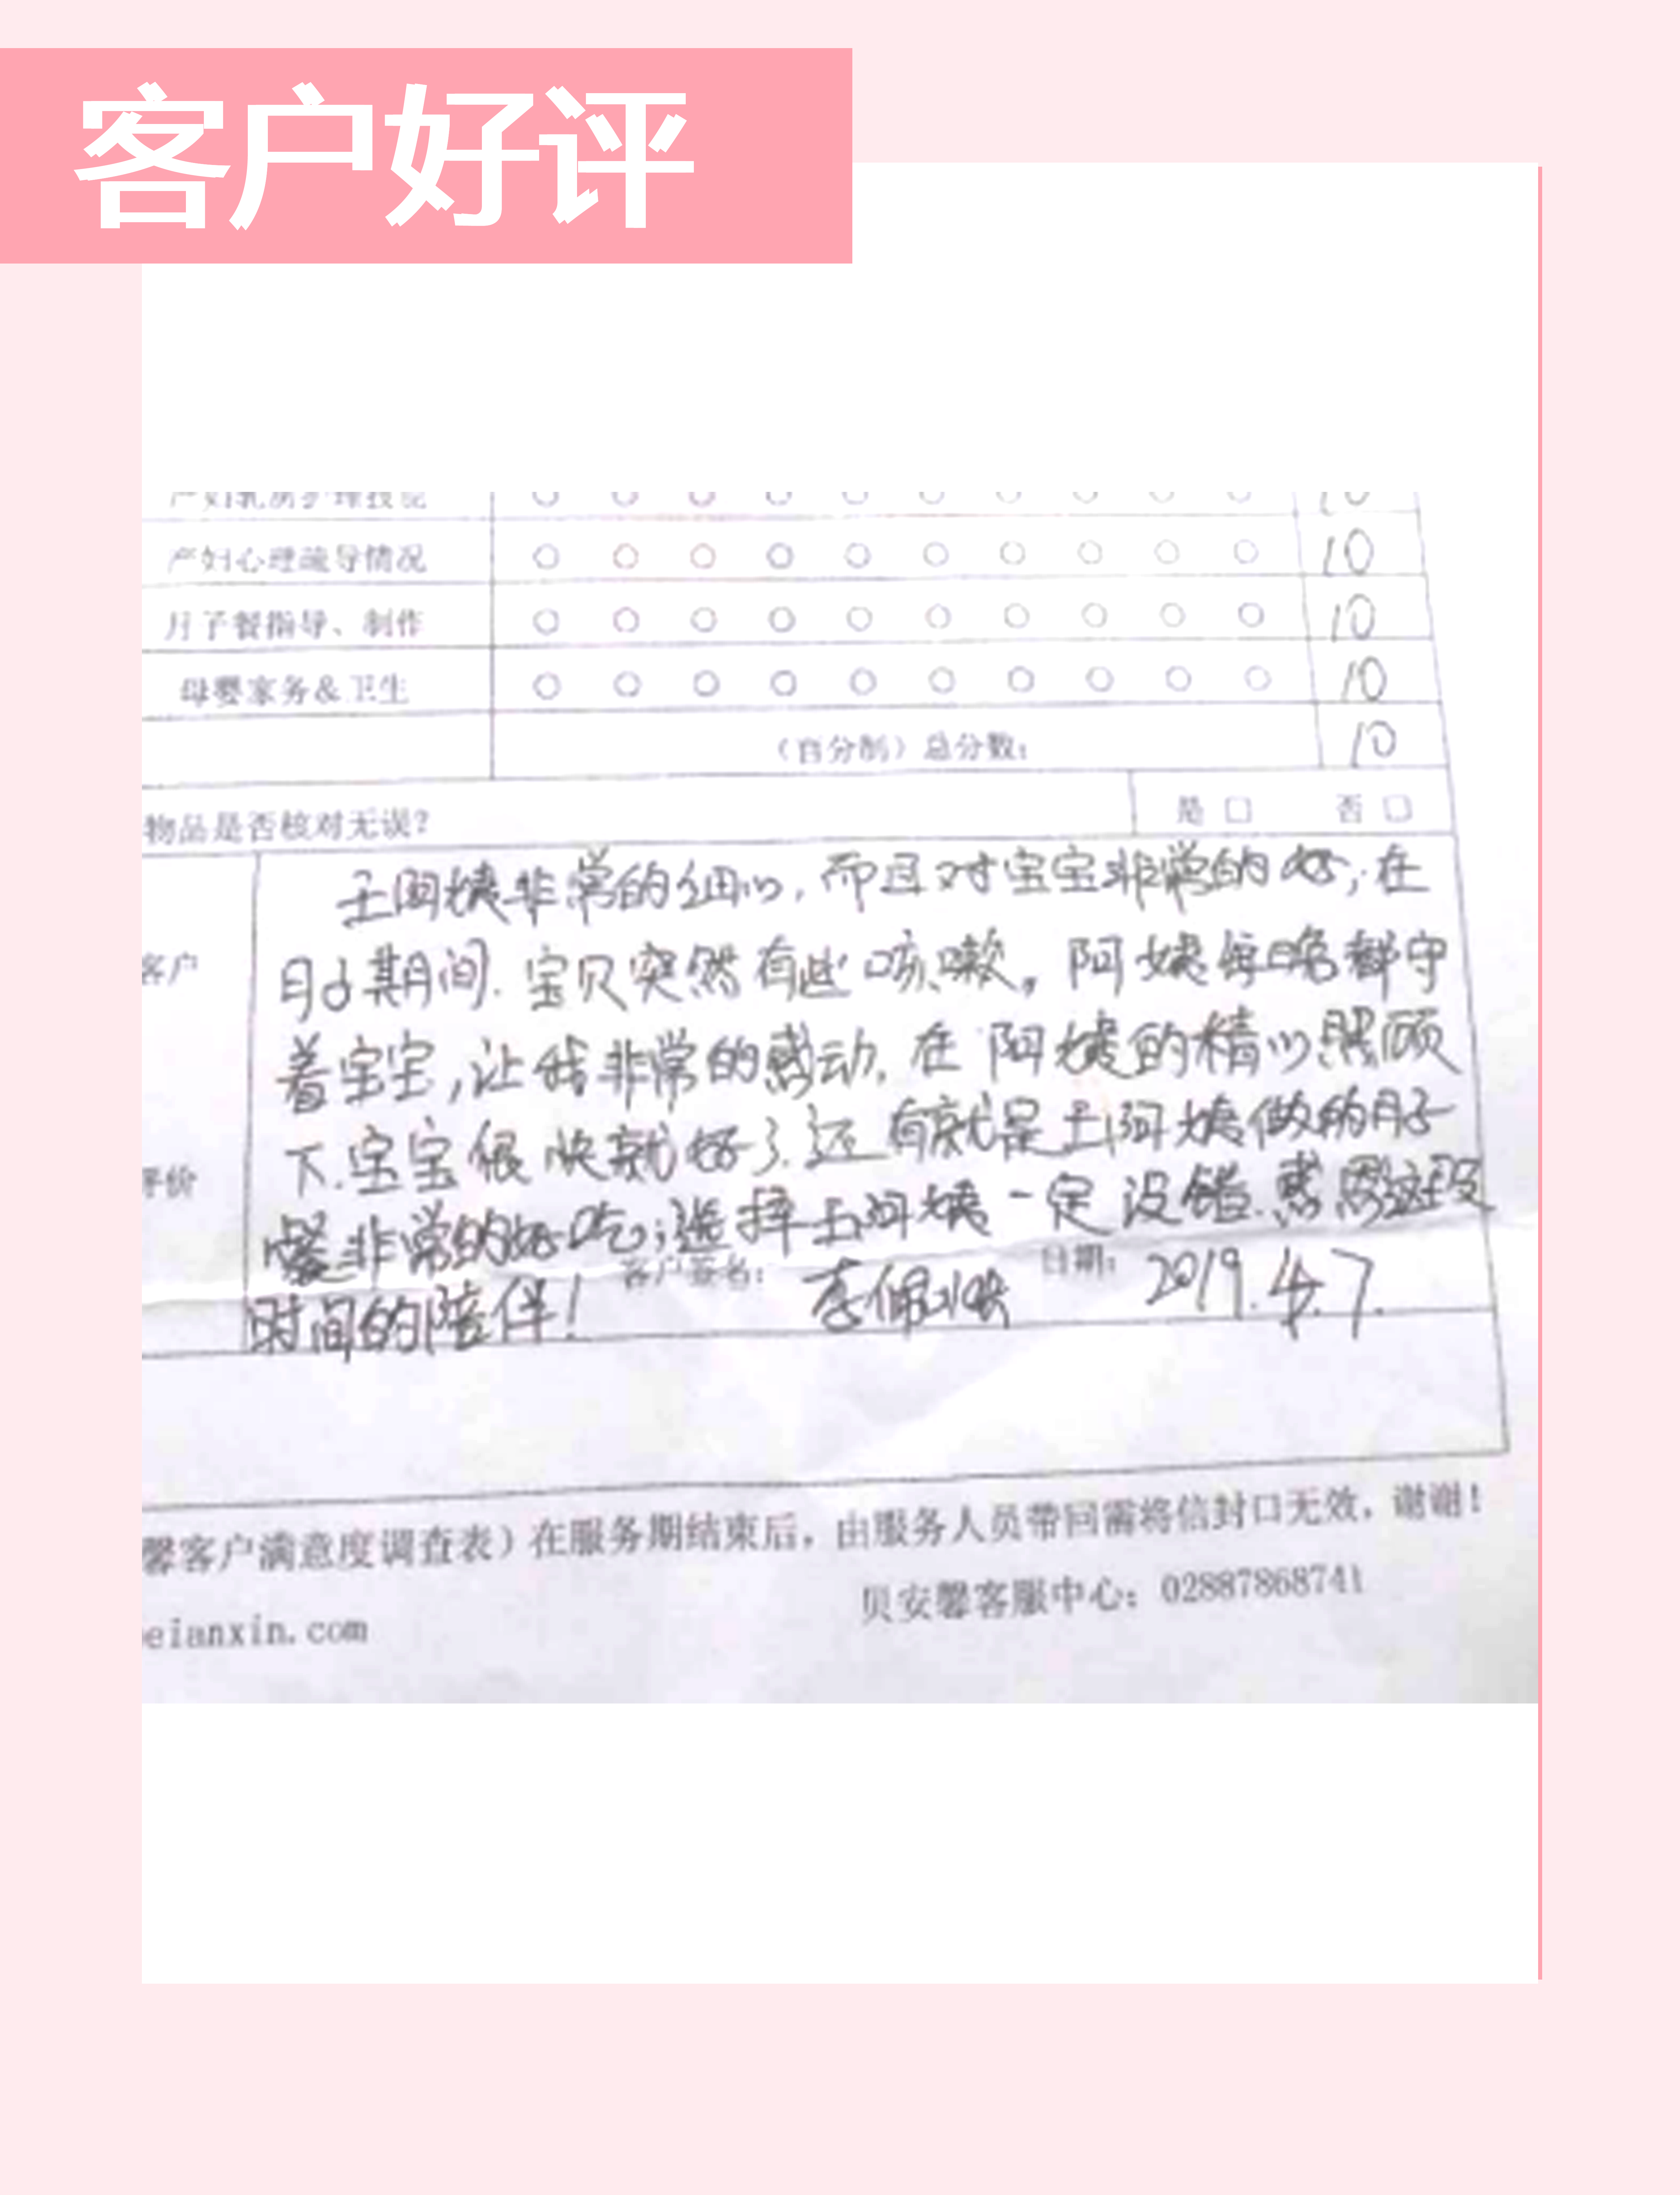 客户好评
产妇乳房护理技能 10
产妇心理疏导情况 10
月子餐指导、制作 10
母婴家务&卫生 10
(百分制)总分数: 10
物品是否核对无误? 是 □ 否 □
客户
评价
王阿姨非常的细心,而且对宝宝非常的好,在
月子期间.宝贝突然有些咳嗽,阿姨每晚都守
着宝宝,让我非常的感动.在阿姨的精心照顾
下.宝宝很快就好了.还有就是王阿姨做的月子
餐非常的好吃;选择王阿姨一定没错.感恩这段
时间的陪伴!
客户签名: 李佩 日期: 2019.4.7.
馨客户满意度调查表)在服务期结束后,由服务人员带回需将信封口无效,谢谢!
贝安馨客服中心: 02887868741
eianxin.com